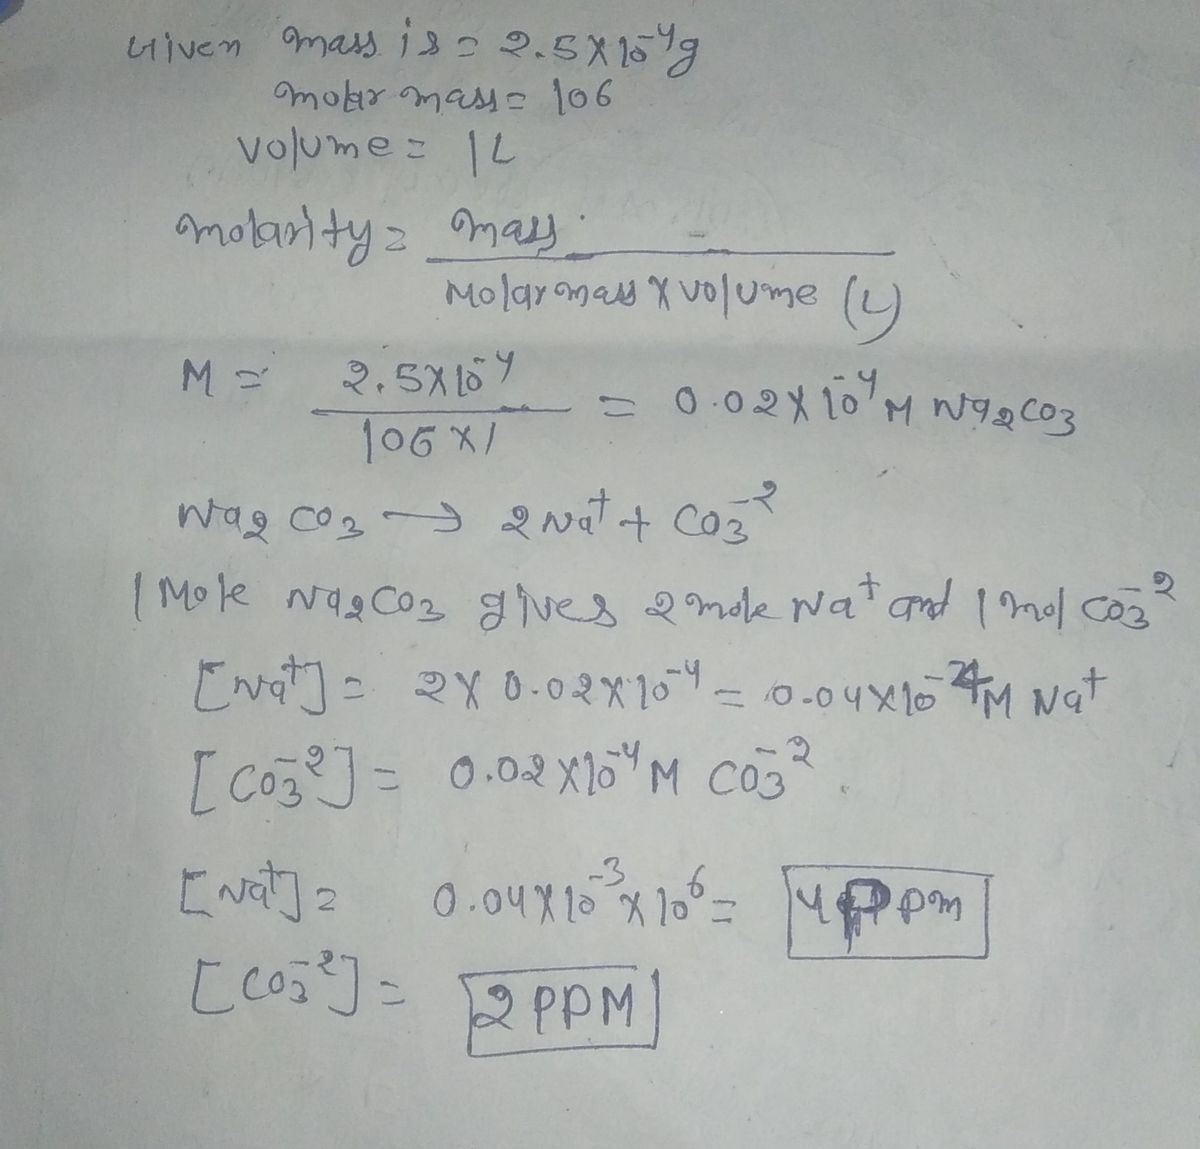 Given mass is = 2.5 X 10⁻⁴g
molar mass = 106
volume = 1L
molarity = mass / Molar mass X volume (L)
M = 2.5X10⁻⁴ / 106 X 1 = 0.02 X 10⁻⁴ M Na₂CO₃
Na₂CO₃ → 2Na⁺ + CO₃⁻²
1 Mole Na₂CO₃ gives 2 mole Na⁺ and 1 mol CO₃⁻²
[Na⁺] = 2 X 0.02 X 10⁻⁴ = 0.04 X 10⁻⁴ M Na⁺
[CO₃⁻²] = 0.02 X 10⁻⁴ M CO₃⁻².
[Na⁺] = 0.04 X 10⁻³ X 10⁶ = 4 PPm
[CO₃⁻²] = 2 PPM